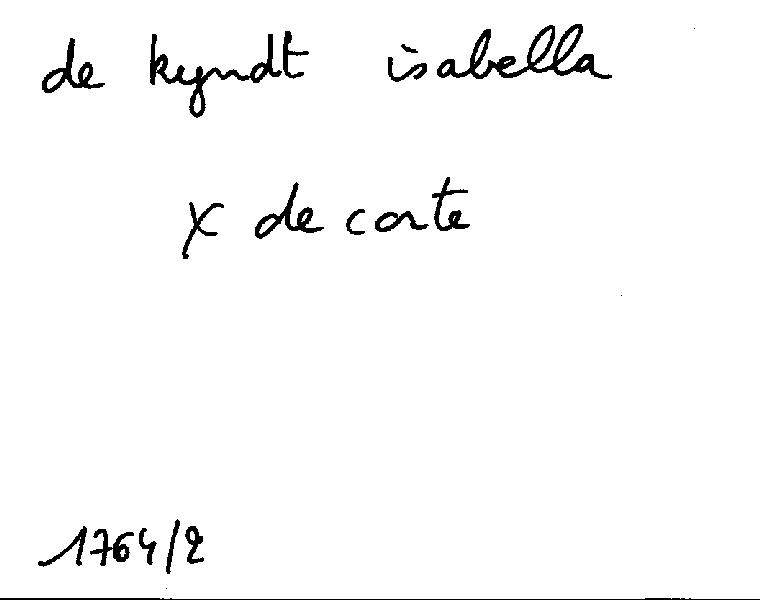 de kyndt isabella
x de corte
1764/2